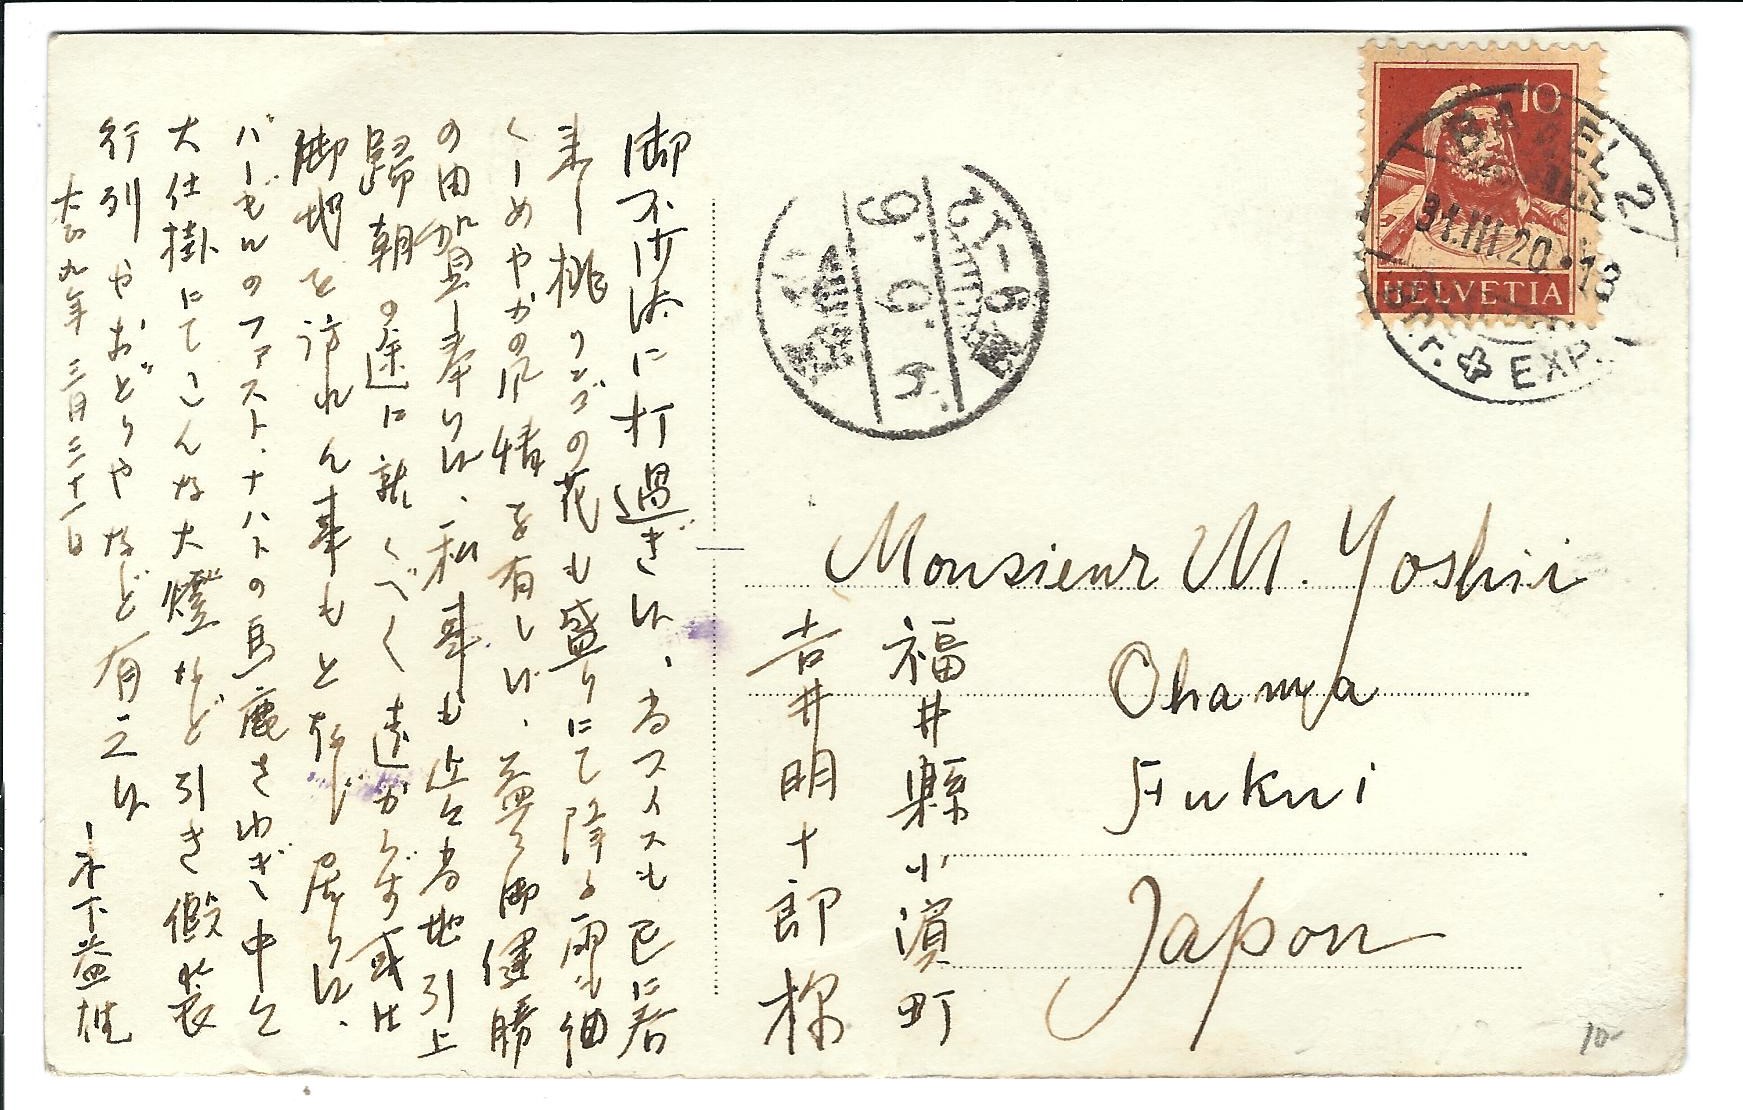 10
HELVETIA
BASEL 2
31.III.20.-13
Br. EXP.
9.6.6
Monsieur M. Yoshii
Ohama
Fukui
Japon
福井縣小濱町
吉井明十郎様
御不沙汰に打過ぎ候、当スイスも已に春
来し桃リンゴの花も盛りにて降る雨も細
くしめやかの風情を有し候、益々御健勝
の由賀し奉り候、私事も近々当地引上
歸朝の途に就くべく遠からず或は
御地を訪れん事もと存じ居り候、
バーゼルのファスト、ナハトの馬鹿さわぎ中々
大仕掛にてこんな大燈など引き假装
行列やおどりやなど有之候
大正九年三月三十一日
木下益雄